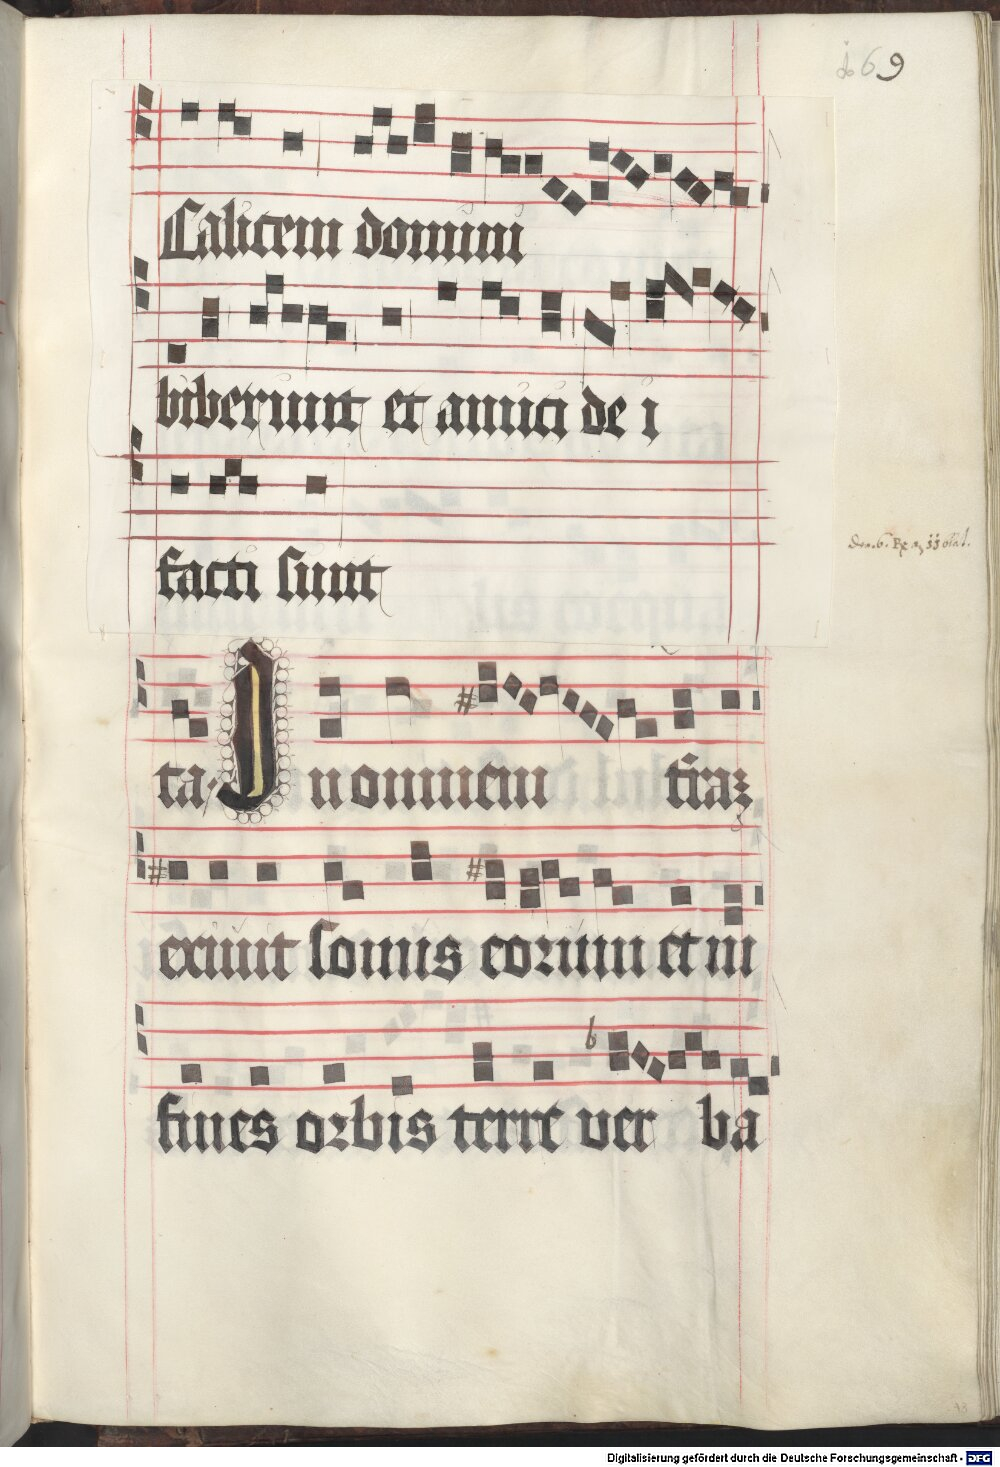 69
Calicem domini
biberunt et amici dei
facti sunt
ta. In omnem terraz
exiuit sonus eorum et in
fines orbis terre ver ba
Digitalisierung gefördert durch die Deutsche Forschungsgemeinschaft - DFG